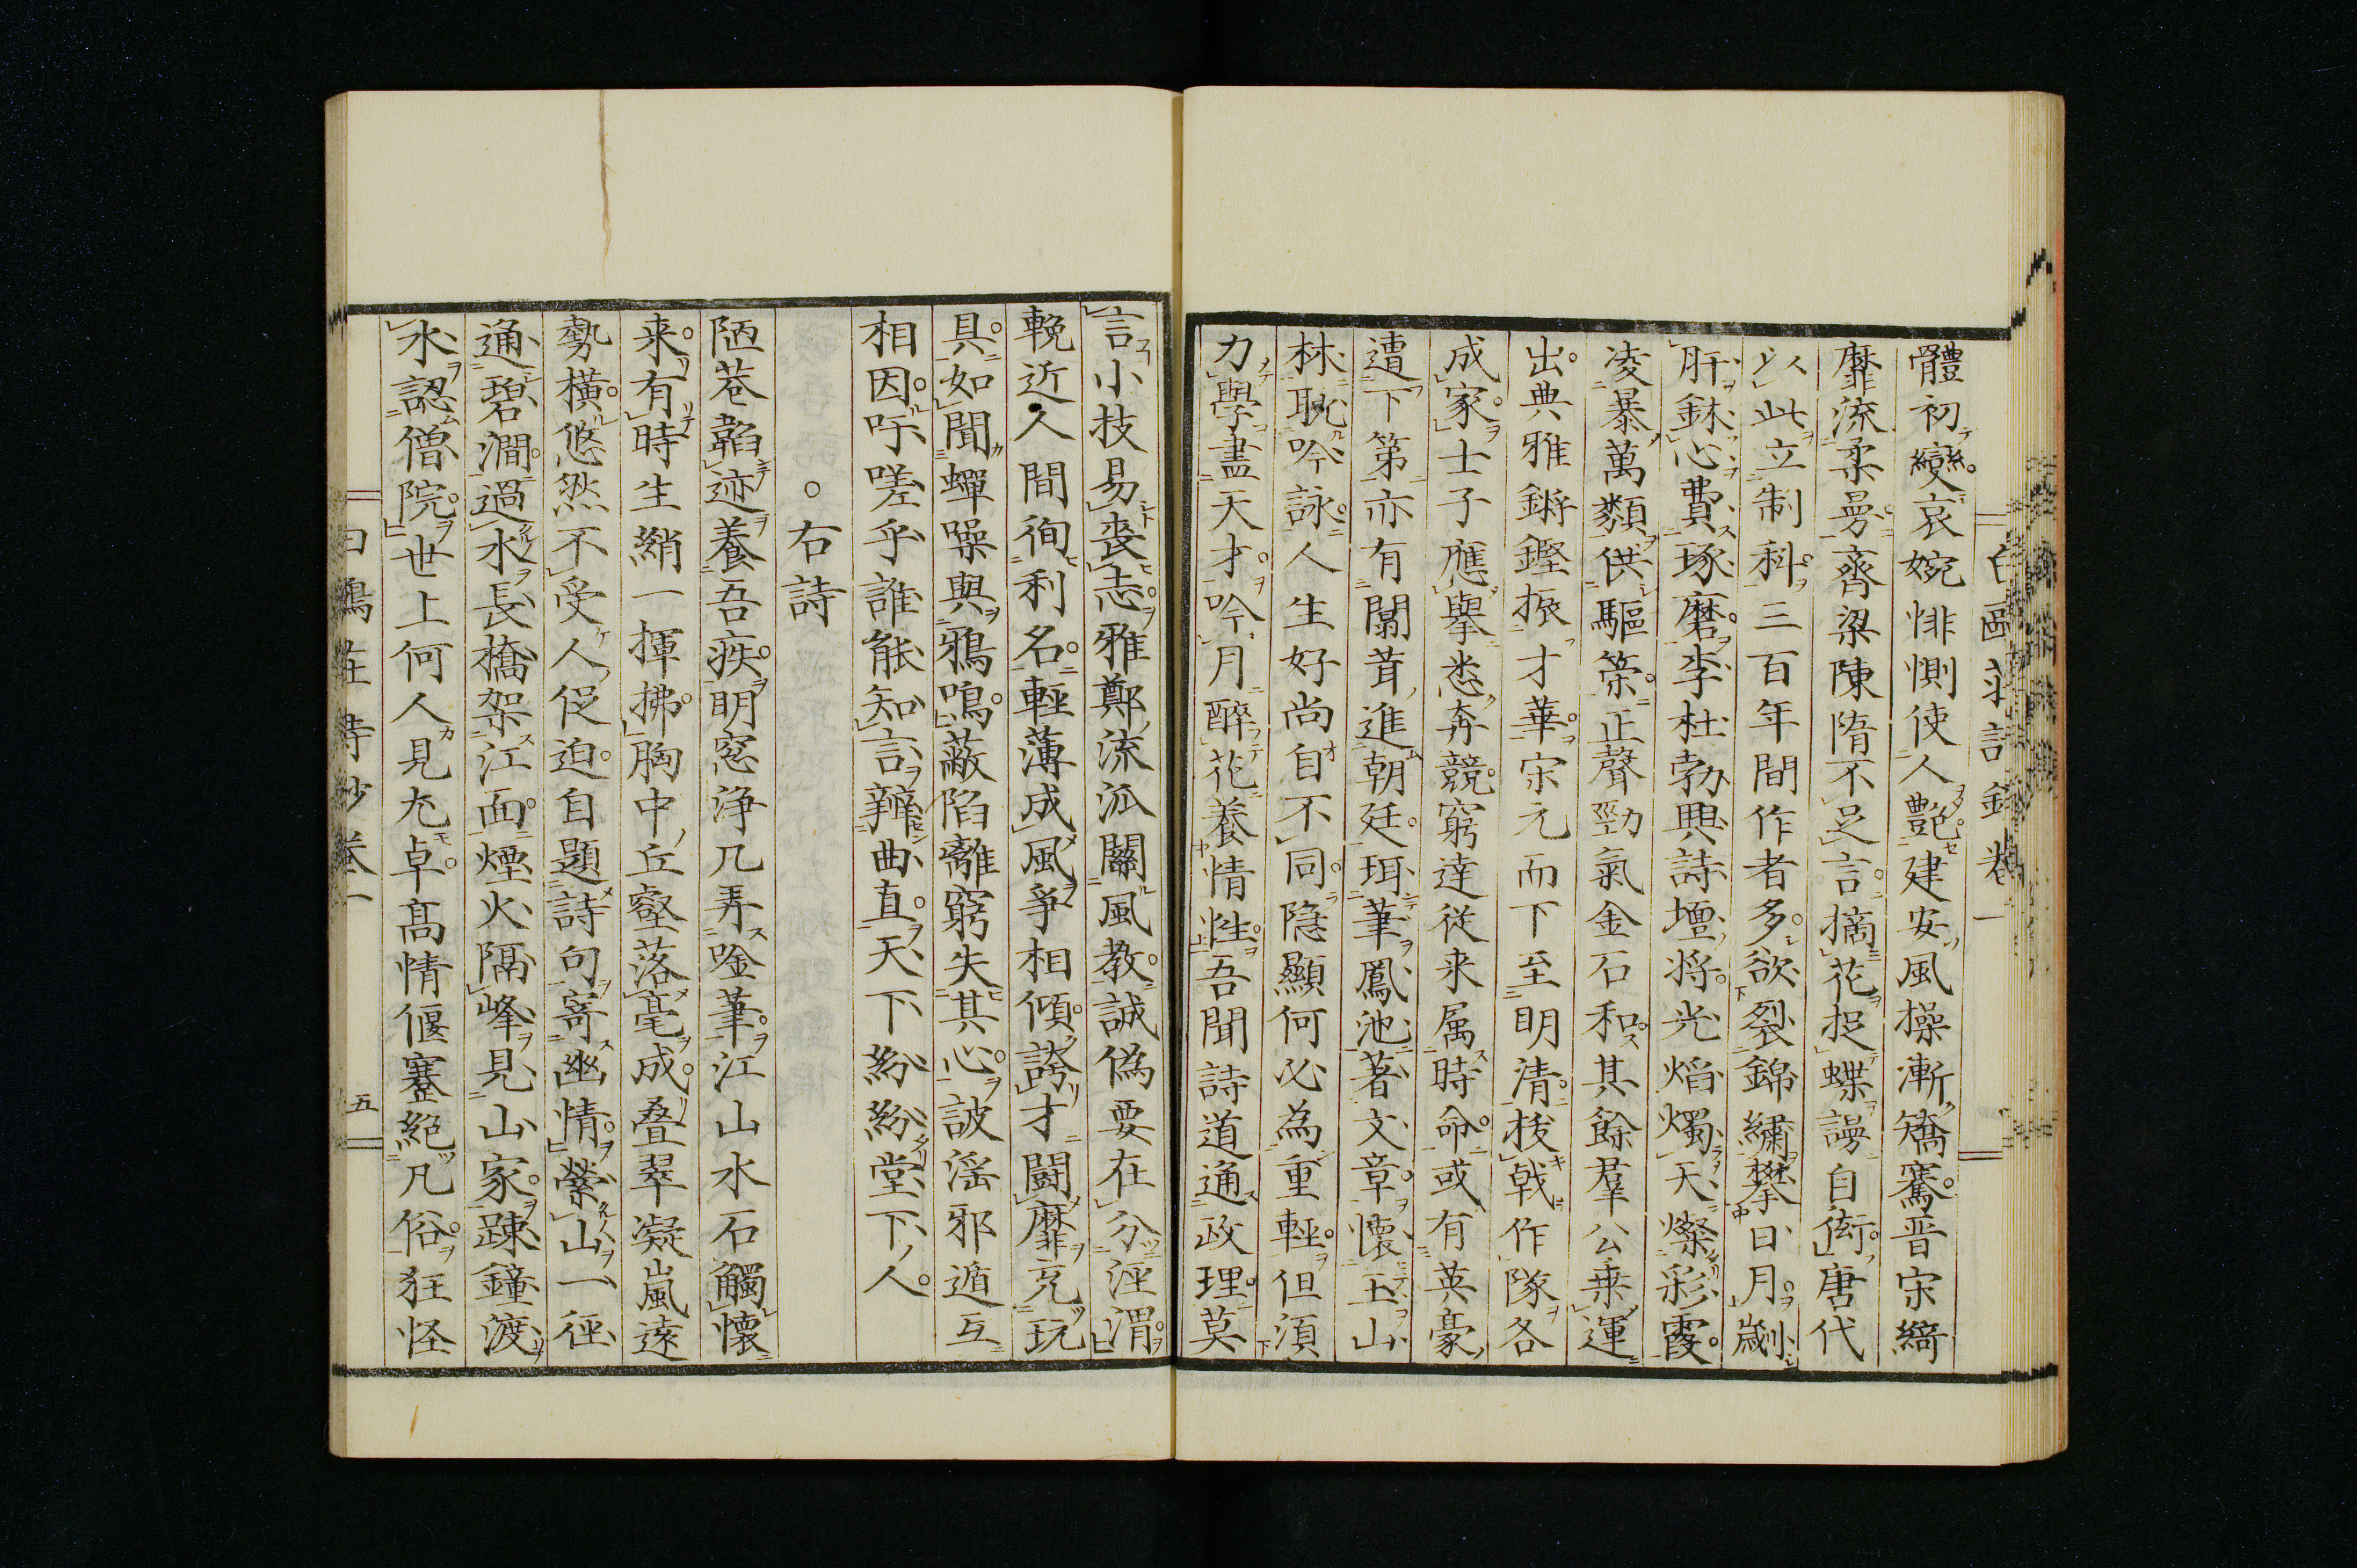 體初變哀婉悱惻使人豔建安風操漸矯騫晉宋綺
靡流柔曼齊梁陳隋不足言摘花捉蝶謾自衒唐代
以此立制科三百年間作者多欲裂錦繡攀日月劌
肝鉥心費琢磨李杜勃興詩壇將光焰燭天燦彩霞
凌暴萬類供驅策正聲勁氣金石和其餘羣公乗運
出典雅鏘鏗振才華宋元而下至明清梭戟作隊各
成家士子應擧悉奔競窮達従来属時命或有英豪
遭下第亦有闒茸進朝廷珥筆鳳池著文章懷玉山
林耽吟詠人生好尚自不同隠顯何必為重輕但須
力學盡天才吟月醉花養情性吾聞詩道通政理莫
言小技易喪志雅鄭流派關風教誠偽要在分涇渭
輓近人間徇利名輕薄成風爭相傾誇才闘靡竞玩
具如聞蟬噪與鴉鳴蔽陷離窮失其心詖淫邪遁互
相因吁嗟乎誰能知言辨曲直天下紛紛堂下人
○右詩
陋巷韜迹養吾疾明窓浄几弄唫筆江山水石觸懷
来有時生綃一揮拂胸中丘壑落毫成叠翠凝嵐遠
勢横悠然不受人促迫自題詩句寄幽情縈山一徑
通碧澗過水長橋架江面煙火隔峰見山家踈鐘渡
水認僧院世上何人見尢卓高情偃蹇絶凡俗狂怪
五